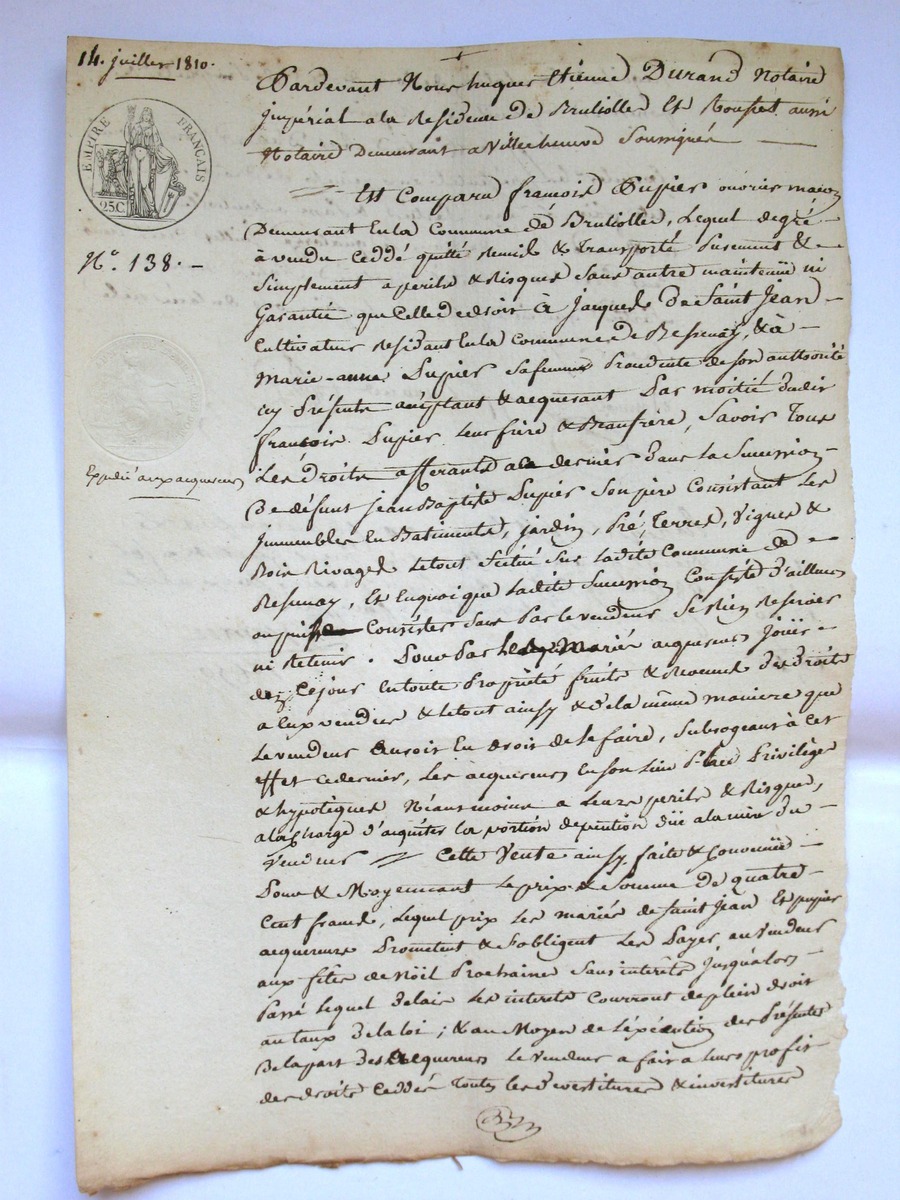 14. juillet 1810.
EMPIRE FRANÇAIS
25C
N.º 138. –
Expedié aux acquereurs
Pardevant Nous hugues Etienne Durand Notaire
jmpérial a la Residence de Brullolles Et Rousset aussi
Notaire Demeurant a Villecheneve Soussignés
Est Comparu francois Dupier ouvrier maçon
Demeurant En la Commune de Brullolles, Lequel de gré
à vendu Ceddé quitté Remis & transporté Purement &
Simplement a perils & Risques Sans autre maintenüe ni
Garantie que Celle de droit à Jacques De Saint Jean
Cultivateur Residant En la Commune de Bessenay, & à
Marie-anne Dupier Sa femme Procedante de Son authorité
icy Présents acceptant & acquerant Par moitié dudit
francois Dupier leur frère & Beaufrère, Savoir Tous
Les Droits afferants a ce dernier Dans la Succession
De défunt jean Baptiste Dupier Son père Consistant Les
jmmeubles En Batiments, jardin, Pré, Terres, Vignes &
Bois Rivages Le tout Scitué Sur ladite Commune de
Bessenay, Et En quoi que ladite Succession Consiste d'ailleurs
ou puisse Consister Sans Par le vendeur Se Rien Reserver
ni Retenir. Pour Par Les Mariés acquereurs Joüir
dez Ce jour En toute Propriété fruits & Revenus Des Droits
a Eux vendus & le tout ainsy & De la même maniere que
Le vendeur auroit En droit de le faire, Subrogeant à cet
Effet ce dernier, Les acquereurs En Son Lieu Place Privilèges
& hypotèques Néantmoins a Leurs perils & Risques,
a la Charge d'acquiter la portion de pention düe a la mère du
Vendeur Cette Vente ainsy faite & Convenüe
Pour & Moyennant Le prix & Somme De quatre
Cent francs, Lequel prix Les mariés de Saint Jean Et Dupier
acquereurs Promettent & S'obligent Les Payer au Vendeur
aux fêtes de Nöel Prochaines Sans interêts Jusqu'alors
Passé Lequel Delais Les interets Courront de plein droit
au taux De la loi ; & au Moyen de L'éxécution des Présentes
De la part Des acquereurs Le vendeur a fait a Leurs profit
des droits Ceddés Toutes Les Devestitures & investitures